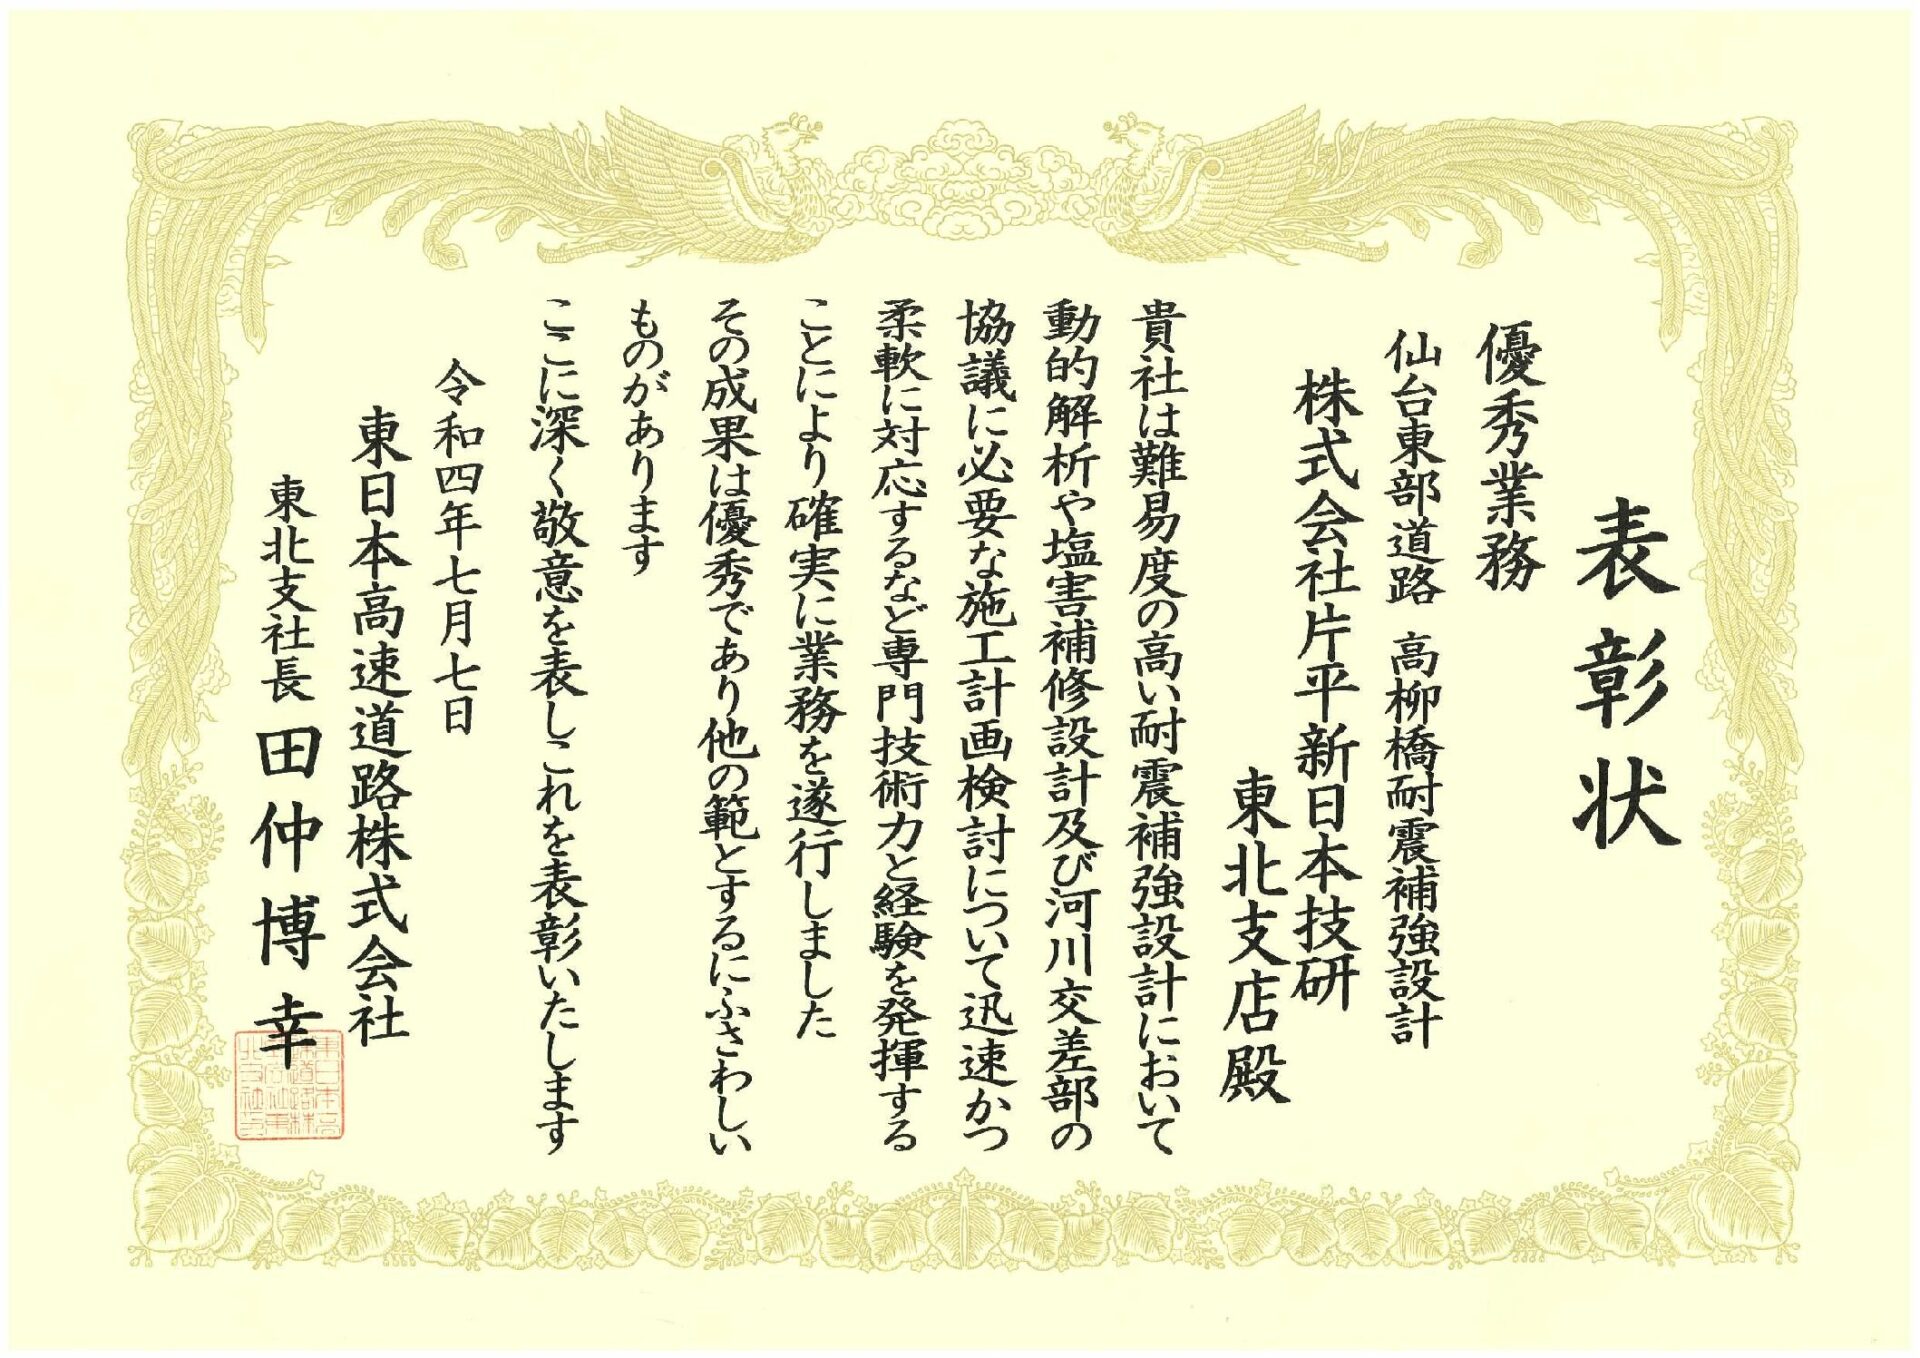 表彰状
優秀業務
仙台東部道路 高柳橋耐震補強設計
株式会社片平新日本技研
東北支店殿
貴社は難易度の高い耐震補強設計において
動的解析や塩害補修設計及び河川交差部の
協議に必要な施工計画検討について迅速かつ
柔軟に対応するなど専門技術力と経験を発揮する
ことにより確実に業務を遂行しました
その成果は優秀であり他の範とするにふさわしい
ものがあります
ここに深く敬意を表しこれを表彰いたします
令和四年七月七日
東日本高速道路株式会社
東北支社長 田仲博幸